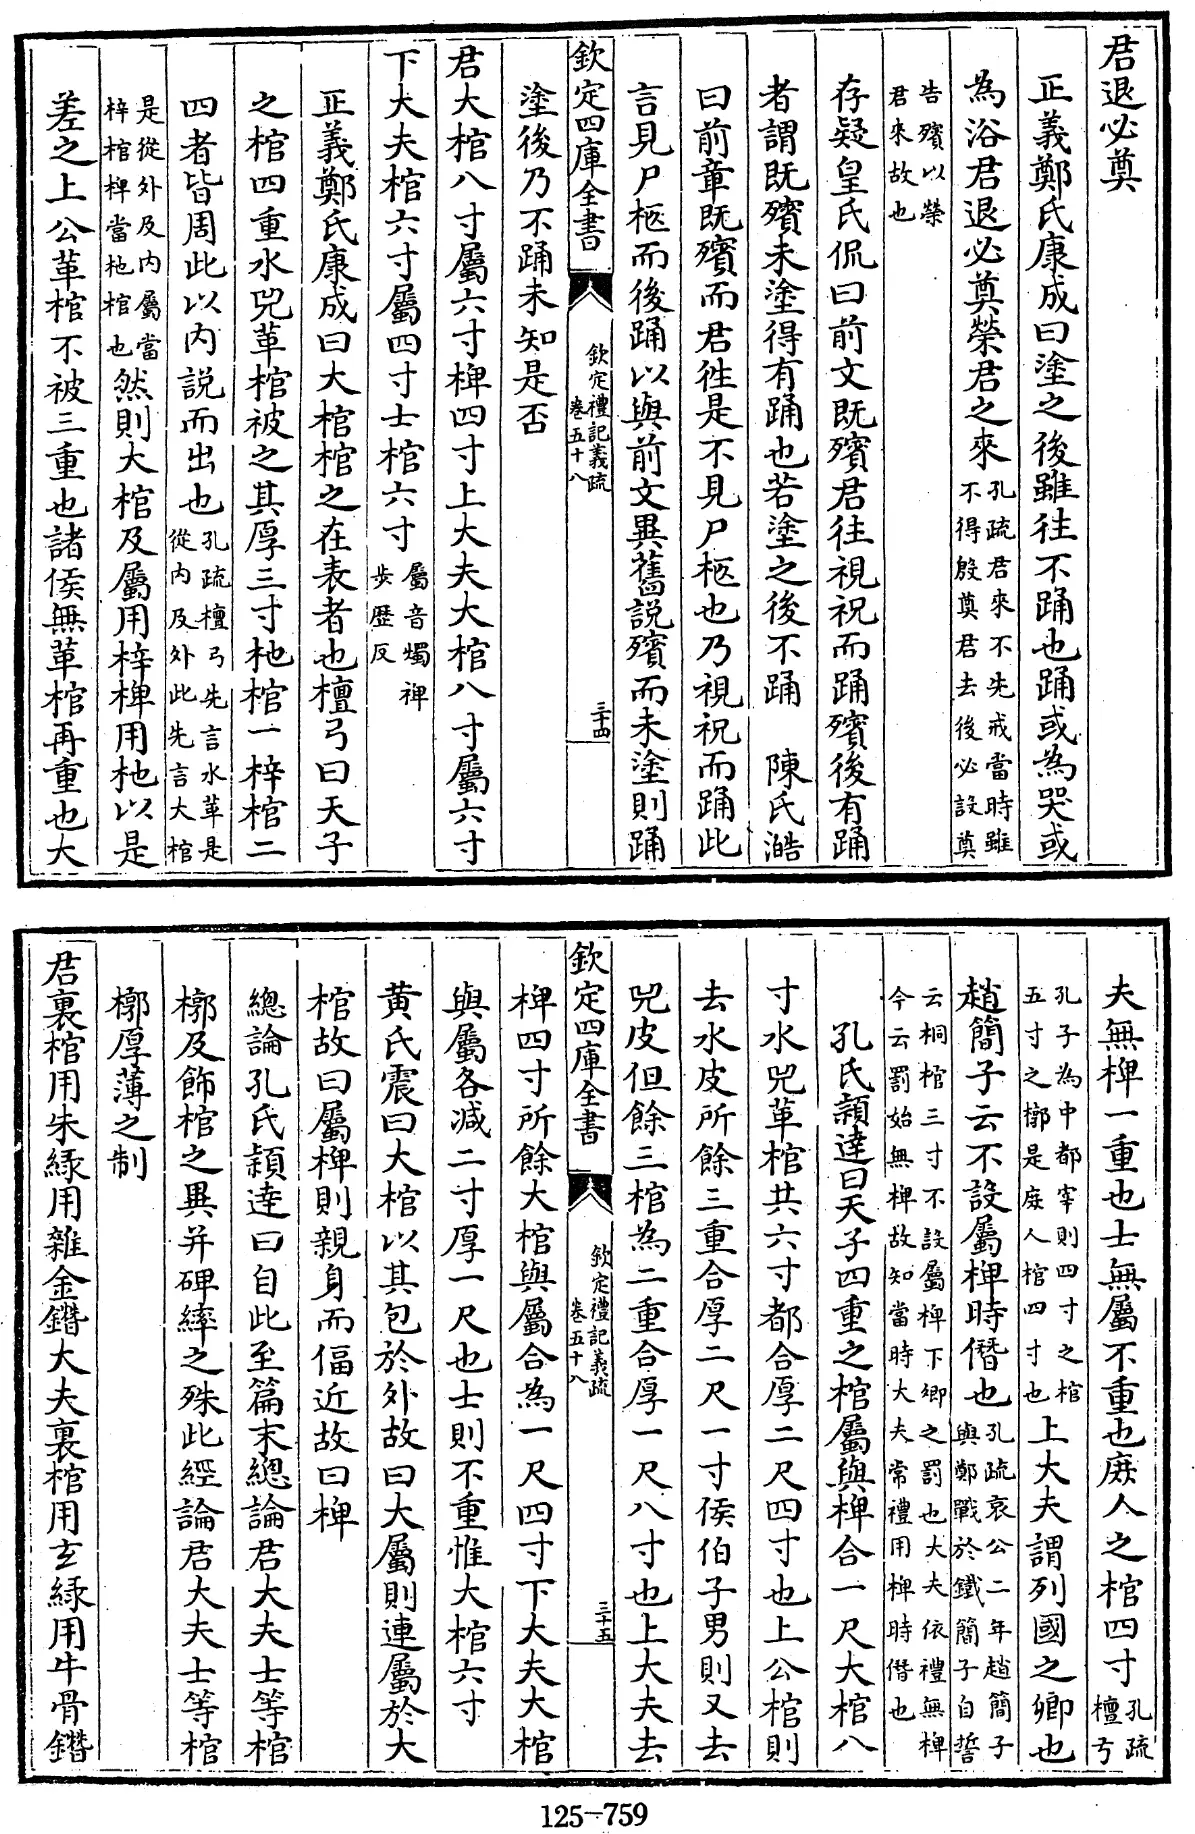 君退必奠
正義鄭氏康成曰塗之後雖往不踊也踊或為哭或
為浴君退必奠榮君之來孔疏君來不先戒當時雖不得殷奠君去後必設奠
告殯以榮君來故也
存疑皇氏侃曰前文既殯君往視祝而踊殯後有踊
者謂既殯未塗得有踊也若塗之後不踊 陳氏澔
曰前章既殯而君往是不見尸柩也乃視祝而踊此
言見尸柩而後踊以與前文異舊說殯而未塗則踊
欽定四庫全書 欽定禮記義疏 卷五十八 三十四
塗後乃不踊未知是否
君大棺八寸屬六寸椑四寸上大夫大棺八寸屬六寸
下大夫棺六寸屬四寸士棺六寸屬音燭椑步歴反
正義鄭氏康成曰大棺棺之在表者也檀弓曰天子
之棺四重水兕革棺被之其厚三寸杝棺一梓棺二
四者皆周此以内說而出也孔疏檀弓先言水革是從内及外此先言大棺
是從外及内屬當梓棺椑當杝棺也然則大棺及屬用梓椑用杝以是
差之上公革棺不被三重也諸侯無革棺再重也大
夫無椑一重也士無屬不重也庶人之棺四寸孔疏檀弓
孔子為中都宰則四寸之棺五寸之槨是庶人棺四寸也上大夫謂列國之卿也
趙簡子云不設屬椑時僭也孔疏哀公二年趙簡子與鄭戰於鐵簡子自誓
云桐棺三寸不設屬椑下卿之罰也大夫依禮無椑今云罰始無椑故知當時大夫常禮用椑時僭也
孔氏頴達曰天子四重之棺屬與椑合一尺大棺八
寸水兕革棺共六寸都合厚二尺四寸也上公棺則
去水皮所餘三重合厚二尺一寸侯伯子男則又去
兕皮但餘三棺為二重合厚一尺八寸也上大夫去
欽定四庫全書 欽定禮記義疏 卷五十八 三十五
椑四寸所餘大棺與屬合為一尺四寸下大夫大棺
與屬各減二寸厚一尺也士則不重惟大棺六寸
黄氏震曰大棺以其包於外故曰大屬則連屬於大
棺故曰屬椑則親身而偪近故曰椑
總論孔氏頴達曰自此至篇末總論君大夫士等棺
槨及飾棺之異并碑繂之殊此經論君大夫士等棺
槨厚薄之制
君裏棺用朱緑用雜金鐕大夫裏棺用玄緑用牛骨鐕
125-759